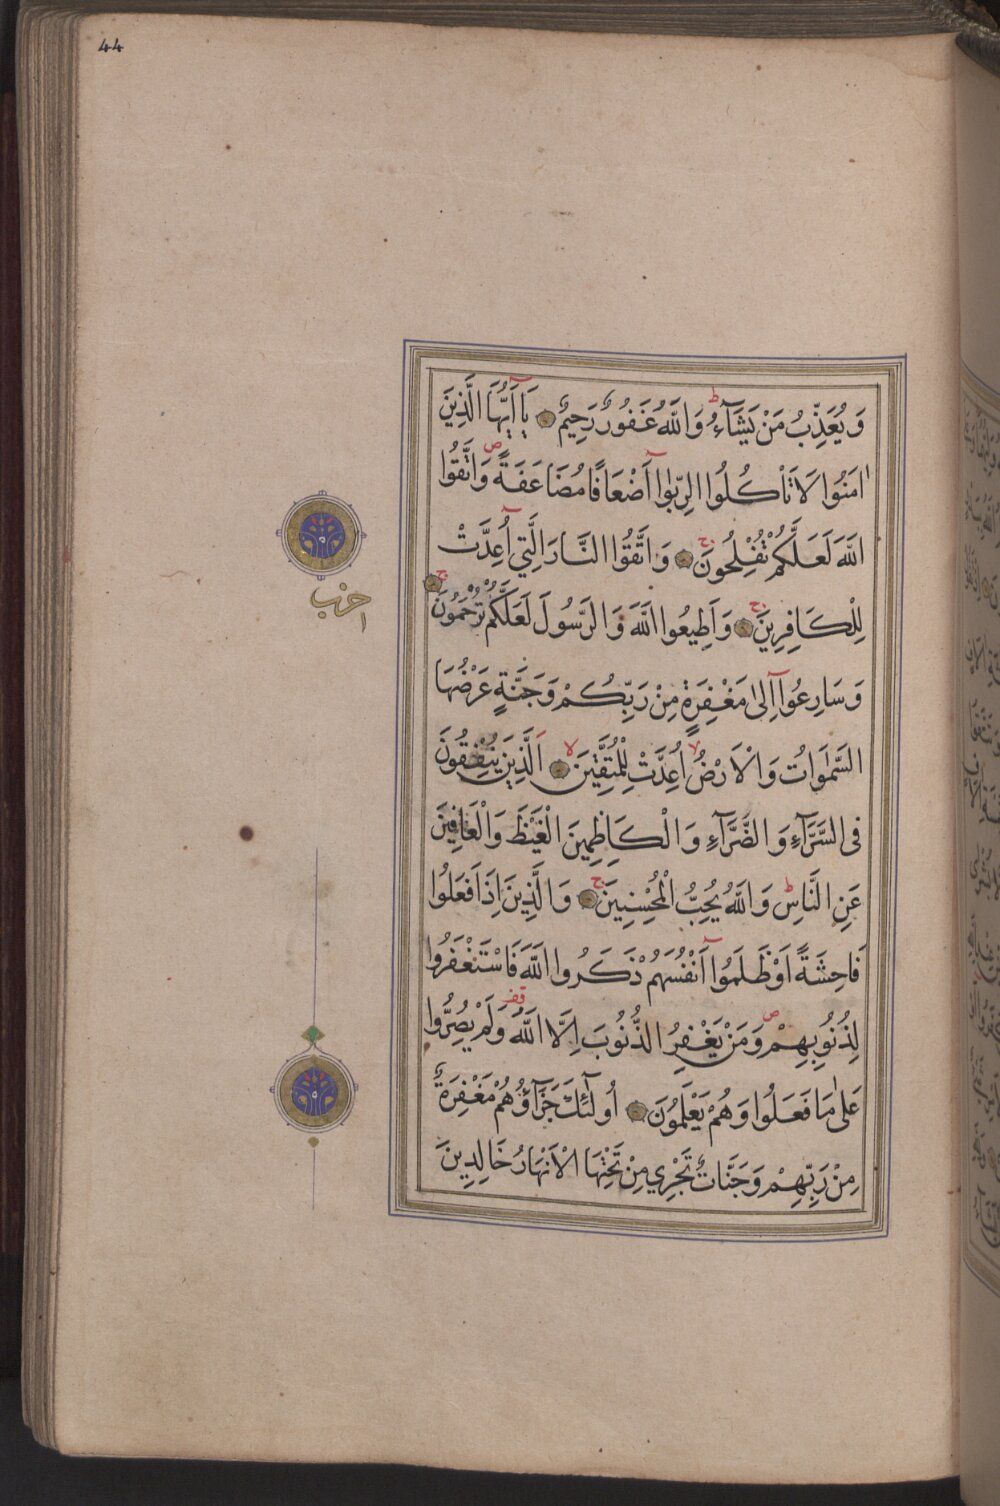 44
وَيُعَذِّبُ مَنْ يَشَآءُ ط وَاللّٰهُ غَفُورٌ رَحِيمٌ يَٓا اَيُّهَا الَّذِينَ
اٰمَنُوا لَا تَأْكُلُوا الرِّبٰوٓا أَضْعَافًا مُضَاعَفَةً ص وَاتَّقُوا
اللّٰهَ لَعَلَّكُمْ تُفْلِحُونَ ج وَاتَّقُوا النَّارَ الَّتِٓي اُعِدَّتْ
لِلْكَافِرِينَ ج وَاَطِيعُوا اللّٰهَ وَالرَّسُولَ لَعَلَّكُمْ تُرْحَمُونَ ج
حزب ١
وَسَارِعُوٓا اِلٰى مَغْفِرَةٍ مِنْ رَبِّكُمْ وَجَنَّةٍ عَرْضُهَا
السَّمٰوَاتُ وَالْاَرْضُ لا اُعِدَّتْ لِلْمُتَّقِينَ لا اَلَّذِينَ يُنْفِقُونَ
فِى السَّرَّآءِ وَالضَّرَّآءِ وَالْكَاظِمِينَ الْغَيْظَ وَالْعَافِينَ
عَنِ النَّاسِ ط وَاللّٰهُ يُحِبُّ الْمُحْسِنِينَ ج وَالَّذِينَ اِذَا فَعَلُوا
فَاحِشَةً اَوْ ظَلَمُوٓا اَنْفُسَهُمْ ذَكَرُوا اللّٰهَ فَاسْتَغْفَرُوا
لِذُنُوبِهِمْ ص وَمَنْ يَغْفِرُ الذُّنُوبَ اِلَّا اللّٰهُ قف وَلَمْ يُصِرُّوا
عَلٰى مَا فَعَلُوا وَهُمْ يَعْلَمُونَ اُولٰٓئِكَ جَزَآؤُهُمْ مَغْفِرَةٌ
مِنْ رَبِّهِمْ وَجَنَّاتٌ تَجْرِي مِنْ تَحْتِهَا الْاَنْهَارُ خَالِدِينَ